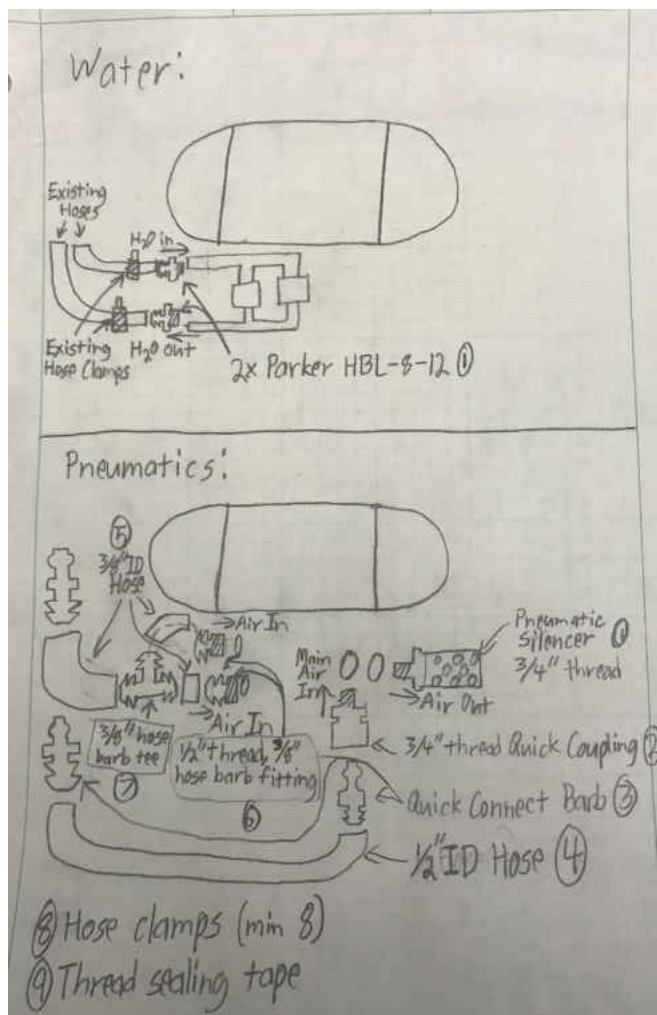 Water:
Existing
Hoses
H₂O in
Existing
Hose Clamps
H₂O out
2x Parker HBL-8-12 ①
Pneumatics:
⑤
3/8" ID
Hose
→Air In
Main
Air
In
Pneumatic
Silencer ①
3/4" thread
→Air Out
→Air In
3/8" hose
barb tee
⑦
1/2" thread, 3/8"
hose barb fitting
⑥
3/4" thread Quick Coupling ②
Quick Connect Barb ③
1/2" ID Hose ④
⑧ Hose clamps (min 8)
⑨ Thread sealing tape